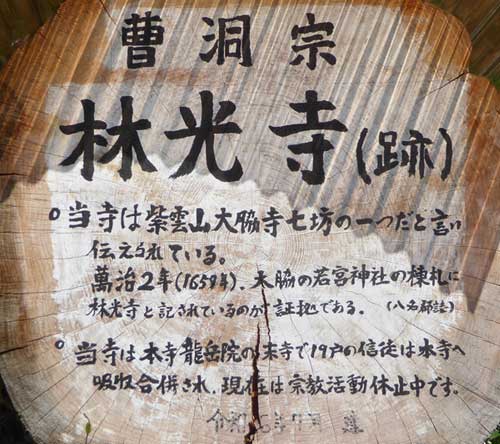 曹洞宗
林光寺(跡)
○当寺は紫雲山大脇寺七坊の一つだと言い
伝えられている。
萬治2年(1659年)、大脇の若宮神社の棟札に
林光寺と記されているのが証拠である。(八名郡誌)
○当寺は本寺龍岳院の末寺で19戸の信徒は本寺へ
吸収合併され、現在は宗教活動休止中です。
令和